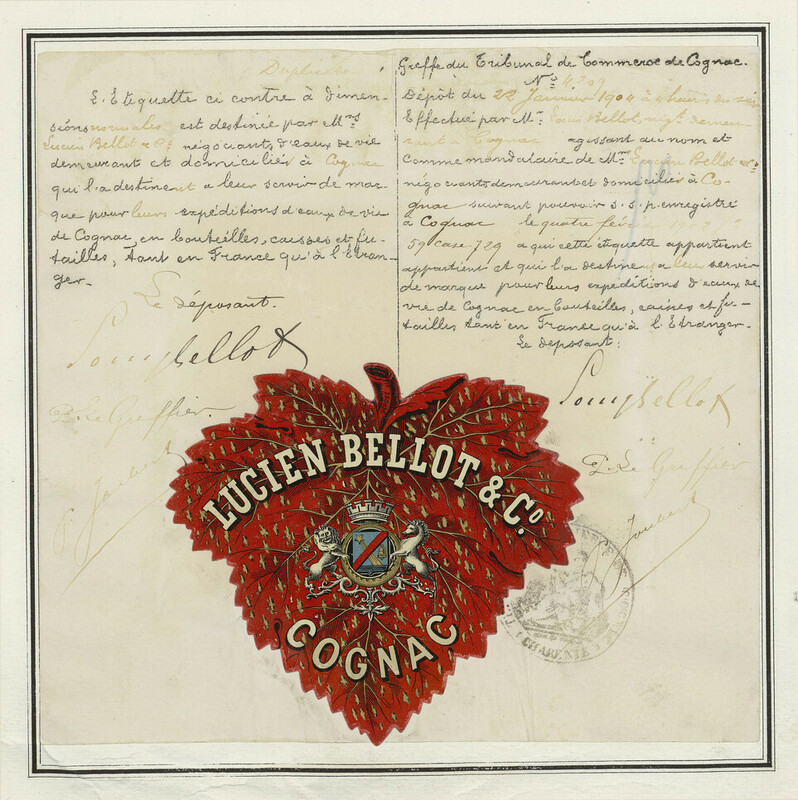 Duplicata
L'Etiquette ci contre à dimen-
sions normales est destinée par Mrs
Lucien Bellot & Co négociants d'eaux de vie
demeurant et domiciliés à Cognac
qui l'a destinent a leur servir de mar-
que pour leurs expéditions d'eaux de vie
de Cognac, en bouteilles, caisses et fu-
tailles, tant en France qu'à l'Etran-
ger.
Le déposant.
Louis Bellot
P. Le Greffier.
Joubert
Greffe du Tribunal de Commerce de Cognac.
No 4209
Dépôt du 22 Janvier 1904 à 4 heures du soir
Effectué par Mr Louis Bellot, négt demeu-
rant à Cognac agissant au nom et
comme mandataire de Mrs Lucien Bellot & Co
négociants demeurant et domiciliés à Co-
gnac suivant pouvoir s.s.p. enregistré
à Cognac le quatre février
59 case 729 a qui cette étiquette appartient
appartient et qui l'a destinent a leur servir
de marque pour leurs expéditions d'eaux de
vie de Cognac en bouteilles, caisses et fu-
tailles tant en France qu'à l'Etranger.
Le déposant:
Louis Bellot
P. Le Greffier
Joubert
LUCIEN BELLOT & Co.
COGNAC
(CHARENTE)